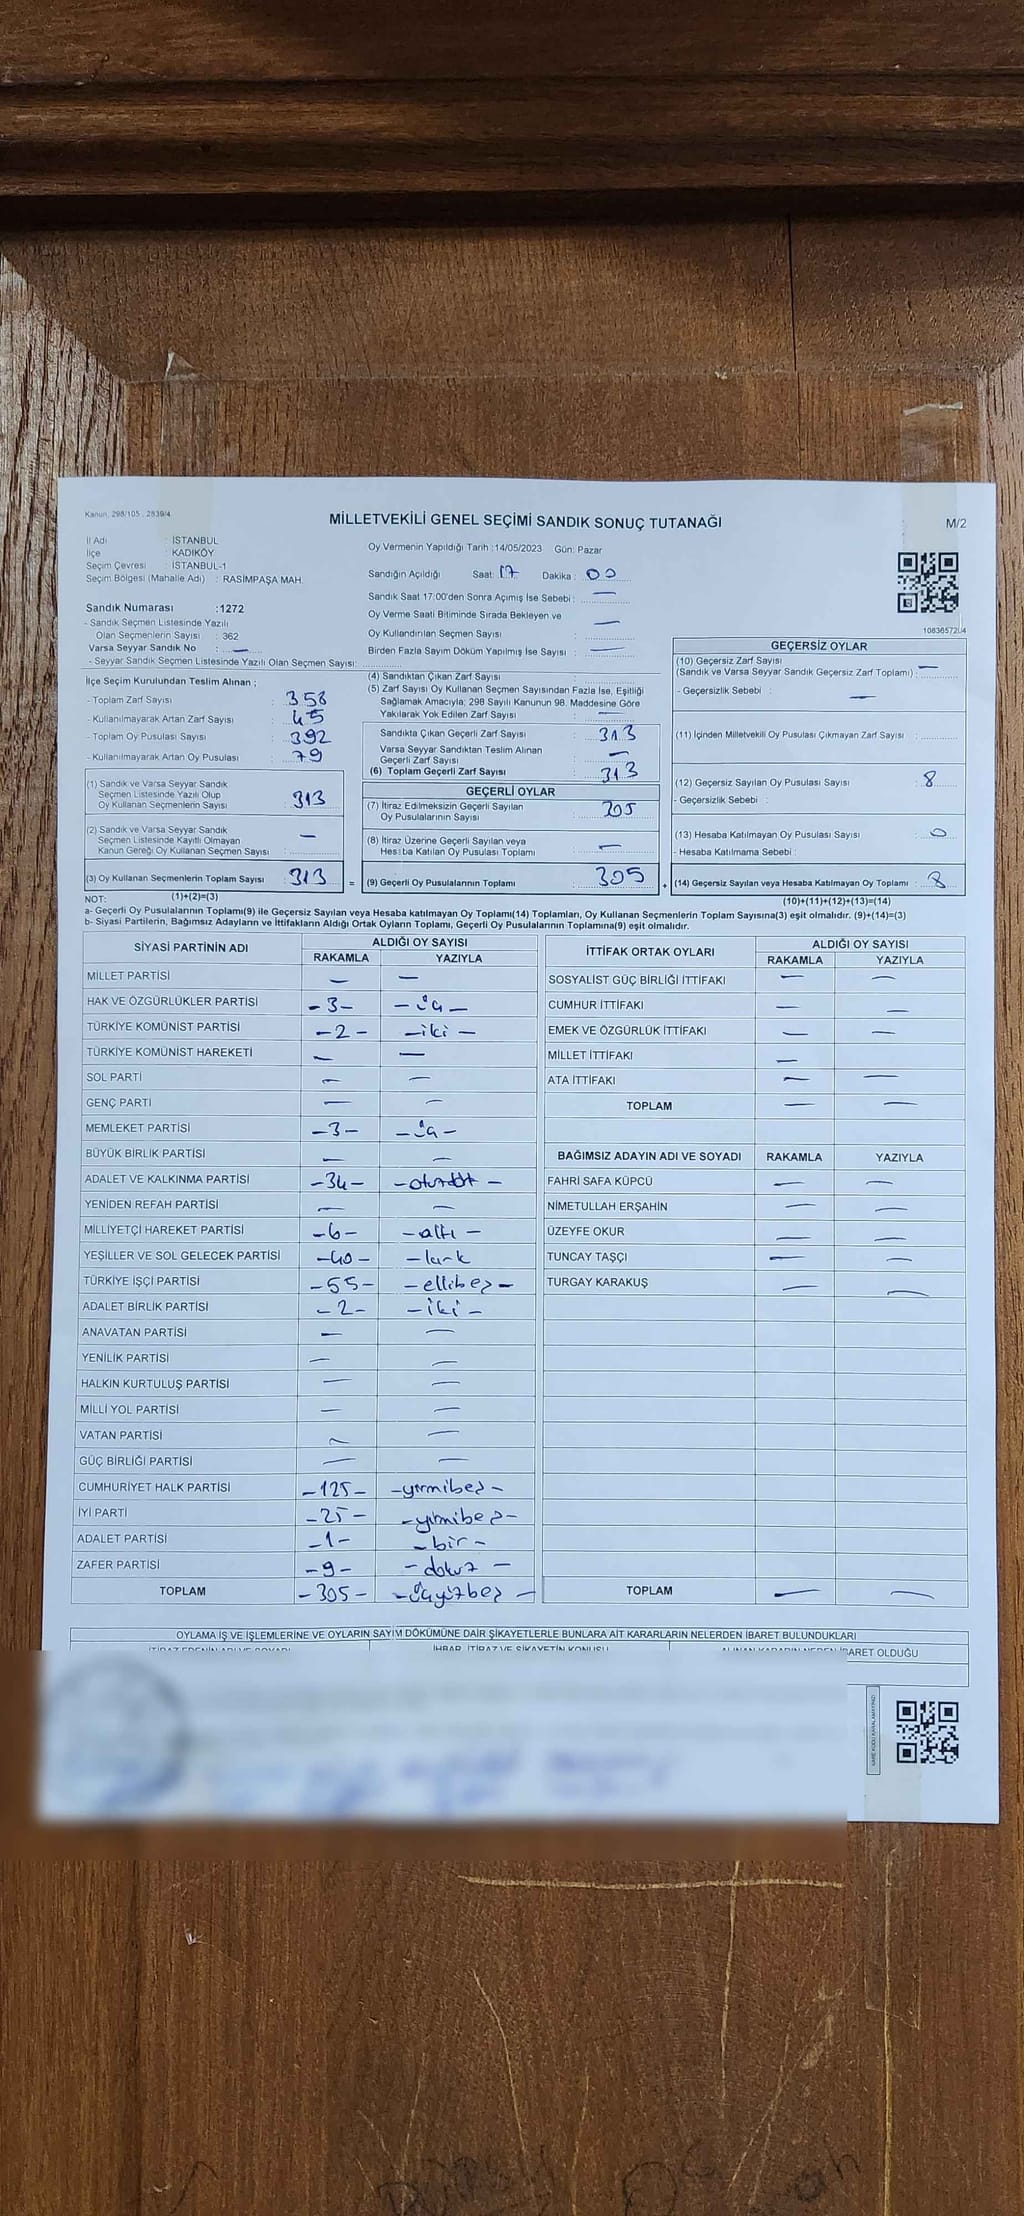 Kanun, 298/105 , 2839/4
MİLLETVEKİLİ GENEL SEÇİMİ SANDIK SONUÇ TUTANAĞI
M/2
İl Adı : İSTANBUL
İlçe : KADIKÖY
Seçim Çevresi : İSTANBUL-1
Seçim Bölgesi (Mahalle Adı) : RASİMPAŞA MAH.
Sandık Numarası :1272
- Sandık Seçmen Listesinde Yazılı
Olan Seçmenlerin Sayısı : 362
Varsa Seyyar Sandık No : —
- Seyyar Sandık Seçmen Listesinde Yazılı Olan Seçmen Sayısı:
Oy Vermenin Yapıldığı Tarih :14/05/2023 Gün: Pazar
Sandığın Açıldığı Saat: 17 Dakika : 00
Sandık Saat 17:00'den Sonra Açımış İse Sebebi : —
Oy Verme Saati Bitiminde Sırada Bekleyen ve
Oy Kullandırılan Seçmen Sayısı : —
Birden Fazla Sayım Döküm Yapılmış İse Sayısı : —
İlçe Seçim Kurulundan Teslim Alınan ;
- Toplam Zarf Sayısı : 358
- Kullanılmayarak Artan Zarf Sayısı : 45
- Toplam Oy Pusulası Sayısı : 392
- Kullanılmayarak Artan Oy Pusulası : 79
(1) Sandık ve Varsa Seyyar Sandık
Seçmen Listesinde Yazılı Olup
Oy Kullanan Seçmenlerin Sayısı : 313
(2) Sandık ve Varsa Seyyar Sandık
Seçmen Listesinde Kayıtlı Olmayan
Kanun Gereği Oy Kullanan Seçmen Sayısı : —
(3) Oy Kullanan Seçmenlerin Toplam Sayısı : 313
(1)+(2)=(3)
(4) Sandıktan Çıkan Zarf Sayısı :
(5) Zarf Sayısı Oy Kullanan Seçmen Sayısından Fazla İse, Eşitliği
Sağlamak Amacıyla; 298 Sayılı Kanunun 98. Maddesine Göre
Yakılarak Yok Edilen Zarf Sayısı : —
Sandıkta Çıkan Geçerli Zarf Sayısı : 313
Varsa Seyyar Sandıktan Teslim Alınan
Geçerli Zarf Sayısı : —
(6) Toplam Geçerli Zarf Sayısı : 313
GEÇERLİ OYLAR
(7) İtiraz Edilmeksizin Geçerli Sayılan
Oy Pusulalarının Sayısı : 305
(8) İtiraz Üzerine Geçerli Sayılan veya
Hesaba Katılan Oy Pusulası Toplamı : —
= (9) Geçerli Oy Pusulalarının Toplamı : 305
GEÇERSİZ OYLAR
(10) Geçersiz Zarf Sayısı
(Sandık ve Varsa Seyyar Sandık Geçersiz Zarf Toplamı) : —
- Geçersizlik Sebebi : —
(11) İçinden Milletvekili Oy Pusulası Çıkmayan Zarf Sayısı :
(12) Geçersiz Sayılan Oy Pusulası Sayısı : 8
- Geçersizlik Sebebi :
(13) Hesaba Katılmayan Oy Pusulası Sayısı : 0
- Hesaba Katılmama Sebebi :
+ (14) Geçersiz Sayılan veya Hesaba Katılmayan Oy Toplamı : 8
(10)+(11)+(12)+(13)=(14)
NOT:
a- Geçerli Oy Pusulalarının Toplamı(9) ile Geçersiz Sayılan veya Hesaba katılmayan Oy Toplamı(14) Toplamları, Oy Kullanan Seçmenlerin Toplam Sayısına(3) eşit olmalıdır. (9)+(14)=(3)
b- Siyasi Partilerin, Bağımsız Adayların ve İttifakların Aldığı Ortak Oyların Toplamı, Geçerli Oy Pusulalarının Toplamına(9) eşit olmalıdır.
SİYASİ PARTİNİN ADI ALDIĞI OY SAYISI
RAKAMLA YAZIYLA
MİLLET PARTİSİ — —
HAK VE ÖZGÜRLÜKLER PARTİSİ -3- -üç-
TÜRKİYE KOMÜNİST PARTİSİ -2- -iki-
TÜRKİYE KOMÜNİST HAREKETİ — —
SOL PARTİ — —
GENÇ PARTİ — —
MEMLEKET PARTİSİ -3- -üç-
BÜYÜK BİRLİK PARTİSİ — —
ADALET VE KALKINMA PARTİSİ -34- -otuzdört-
YENİDEN REFAH PARTİSİ — —
MİLLİYETÇİ HAREKET PARTİSİ -6- -altı-
YEŞİLLER VE SOL GELECEK PARTİSİ -40- -kırk
TÜRKİYE İŞÇİ PARTİSİ -55- -ellibeş-
ADALET BİRLİK PARTİSİ -2- -iki-
ANAVATAN PARTİSİ — —
YENİLİK PARTİSİ — —
HALKIN KURTULUŞ PARTİSİ — —
MİLLİ YOL PARTİSİ — —
VATAN PARTİSİ — —
GÜÇ BİRLİĞİ PARTİSİ — —
CUMHURİYET HALK PARTİSİ -125- -yirmibeş-
İYİ PARTİ -25- -yirmibeş-
ADALET PARTİSİ -1- -bir-
ZAFER PARTİSİ -9- -dokuz-
TOPLAM -305- -üçyüzbeş-
İTTİFAK ORTAK OYLARI ALDIĞI OY SAYISI
RAKAMLA YAZIYLA
SOSYALİST GÜÇ BİRLİĞİ İTTİFAKI — —
CUMHUR İTTİFAKI — —
EMEK VE ÖZGÜRLÜK İTTİFAKI — —
MİLLET İTTİFAKI —
ATA İTTİFAKI — —
TOPLAM — —
BAĞIMSIZ ADAYIN ADI VE SOYADI RAKAMLA YAZIYLA
FAHRİ SAFA KÜPCÜ — —
NİMETULLAH ERŞAHİN — —
ÜZEYFE OKUR — —
TUNCAY TAŞÇI — —
TURGAY KARAKUŞ — —
TOPLAM — —
OYLAMA İŞ VE İŞLEMLERİNE VE OYLARIN SAYIM DÖKÜMÜNE DAİR ŞİKAYETLERLE BUNLARA AİT KARARLARIN NELERDEN İBARET BULUNDUKLARI
İTİRAZ EDENİN ADI VE SOYADI İHBAR, İTİRAZ VE ŞİKAYETİN KONUSU ALINAN KARARIN NEDEN İBARET OLDUĞU